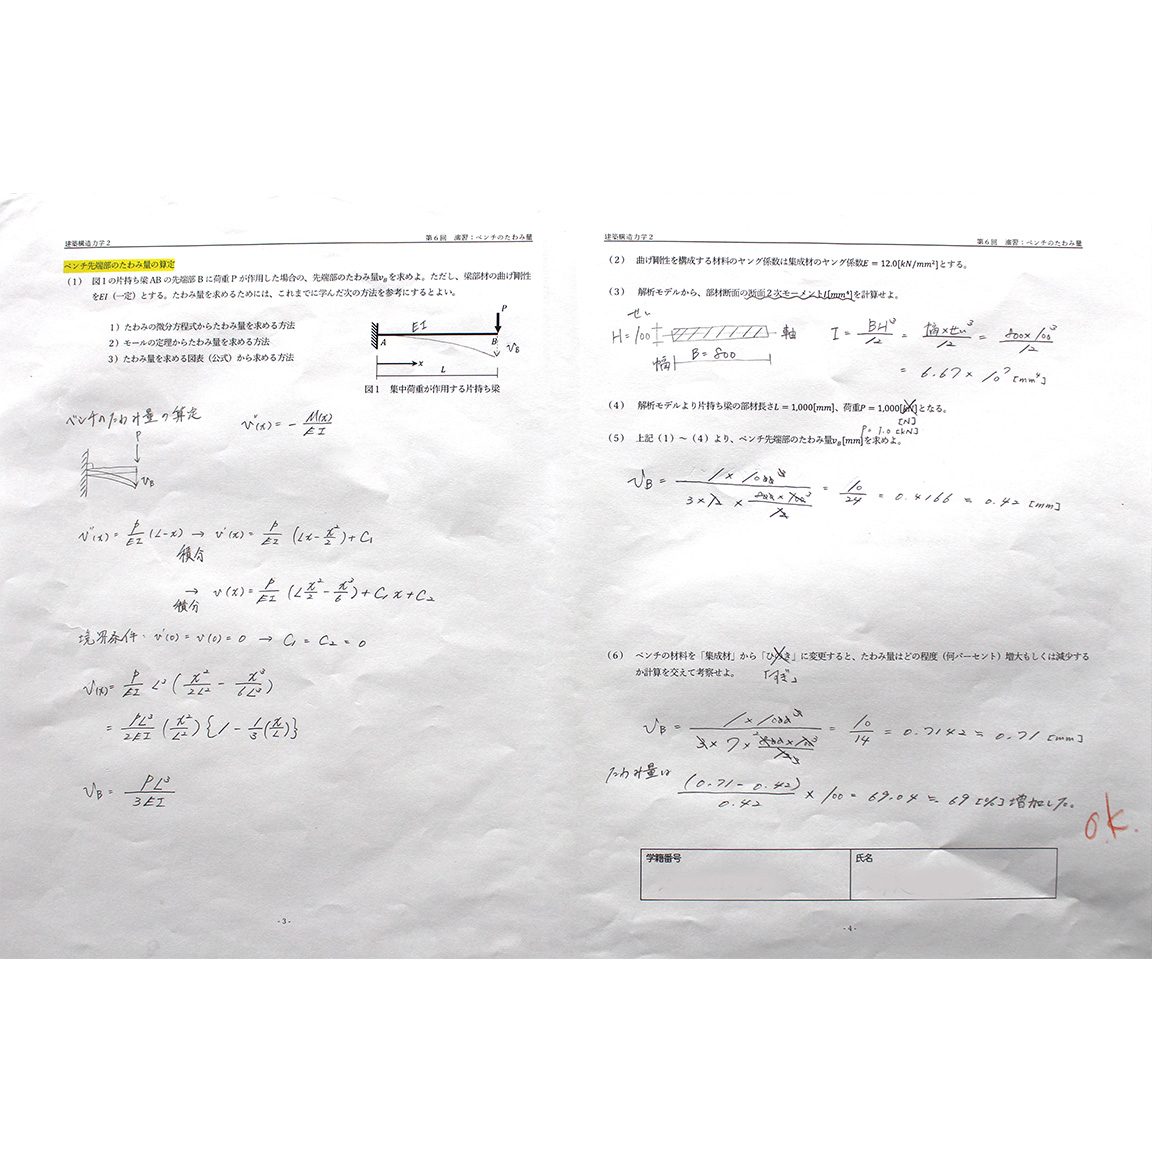 建築構造力学2
第6回 演習：ベンチのたわみ量
ベンチ先端部のたわみ量の算定
（1） 図1の片持ち梁ABの先端部Bに荷重Pが作用した場合の、先端部のたわみ量v_Bを求めよ。ただし、梁部材の曲げ剛性
をEI（一定）とする。たわみ量を求めるためには、これまでに学んだ次の方法を参考にするとよい。
1）たわみの微分方程式からたわみ量を求める方法
2）モールの定理からたわみ量を求める方法
3）たわみ量を求める図表（公式）から求める方法
P
EI
A
B
v_B
x
L
図1 集中荷重が作用する片持ち梁
ベンチのたわみ量の算定
v''(x) = - M(x)/EI
P
v_B
v''(x) = P/EI (L-x) → v'(x) = P/EI (Lx - x²/2) + C₁
積分
→ v(x) = P/EI (L x²/2 - x³/6) + C₁x + C₂
積分
境界条件. v'(0) = v(0) = 0 → C₁ = C₂ = 0
v(x) = P/EI L³ (x²/2L² - x³/6L³)
= PL³/2EI (x²/L²) {1 - 1/3 (x/L)}
v_B = PL³/3EI
- 3 -
建築構造力学2
第6回 演習：ベンチのたわみ量
（2） 曲げ剛性を構成する材料のヤング係数は集成材のヤング係数E = 12.0[kN/mm²]とする。
（3） 解析モデルから、部材断面の断面2次モーメントI[mm⁴]を計算せよ。
せい
H=100
軸
幅
B=800
I = BH³/12 = 幅×せい³/12 = 800×100³/12
= 6.67 × 10⁷ [mm⁴]
（4） 解析モデルより片持ち梁の部材長さL = 1,000[mm]、荷重P = 1,000[kN]となる。
[N]
P = 1.0 [kN]
（5） 上記（1）～（4）より、ベンチ先端部のたわみ量v_B[mm]を求めよ。
v_B = 1×1000³/(3×12×800×100³/12) = 10/24 = 0.4166 ≒ 0.42 [mm]
（6） ベンチの材料を「集成材」から「ひのき」に変更すると、たわみ量はどの程度（何パーセント）増大もしくは減少する
か計算を交えて考察せよ。
「すぎ」
v_B = 1×1000³/(3×7×800×100³/12) = 10/14 = 0.7142 ≒ 0.71 [mm]
たわみ量は
(0.71 - 0.42)/0.42 × 100 = 69.04 ≒ 69 [%] 増加した。
OK.
学籍番号
氏名
- 4 -